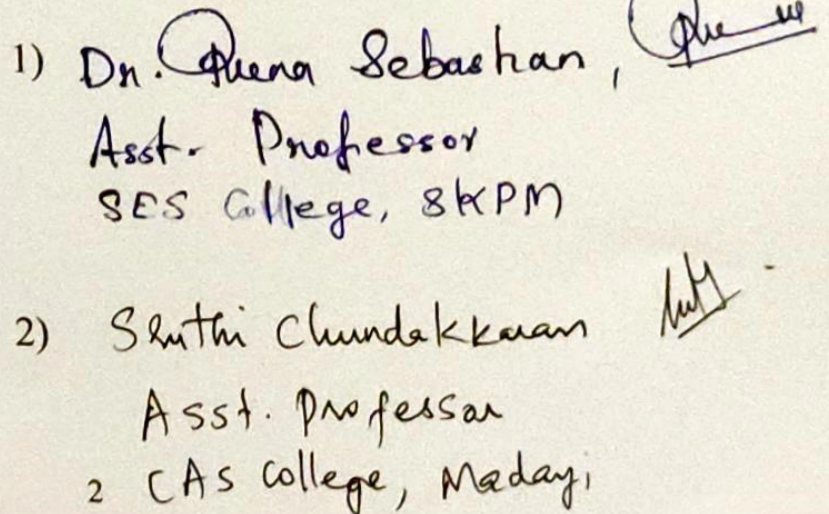 1) Dr. Rhena Sebastian,
Asst. Professor
SES College, SKPM
2) Sruthi Chundakkaran
Asst. Professor
2 CAS College, Madayi